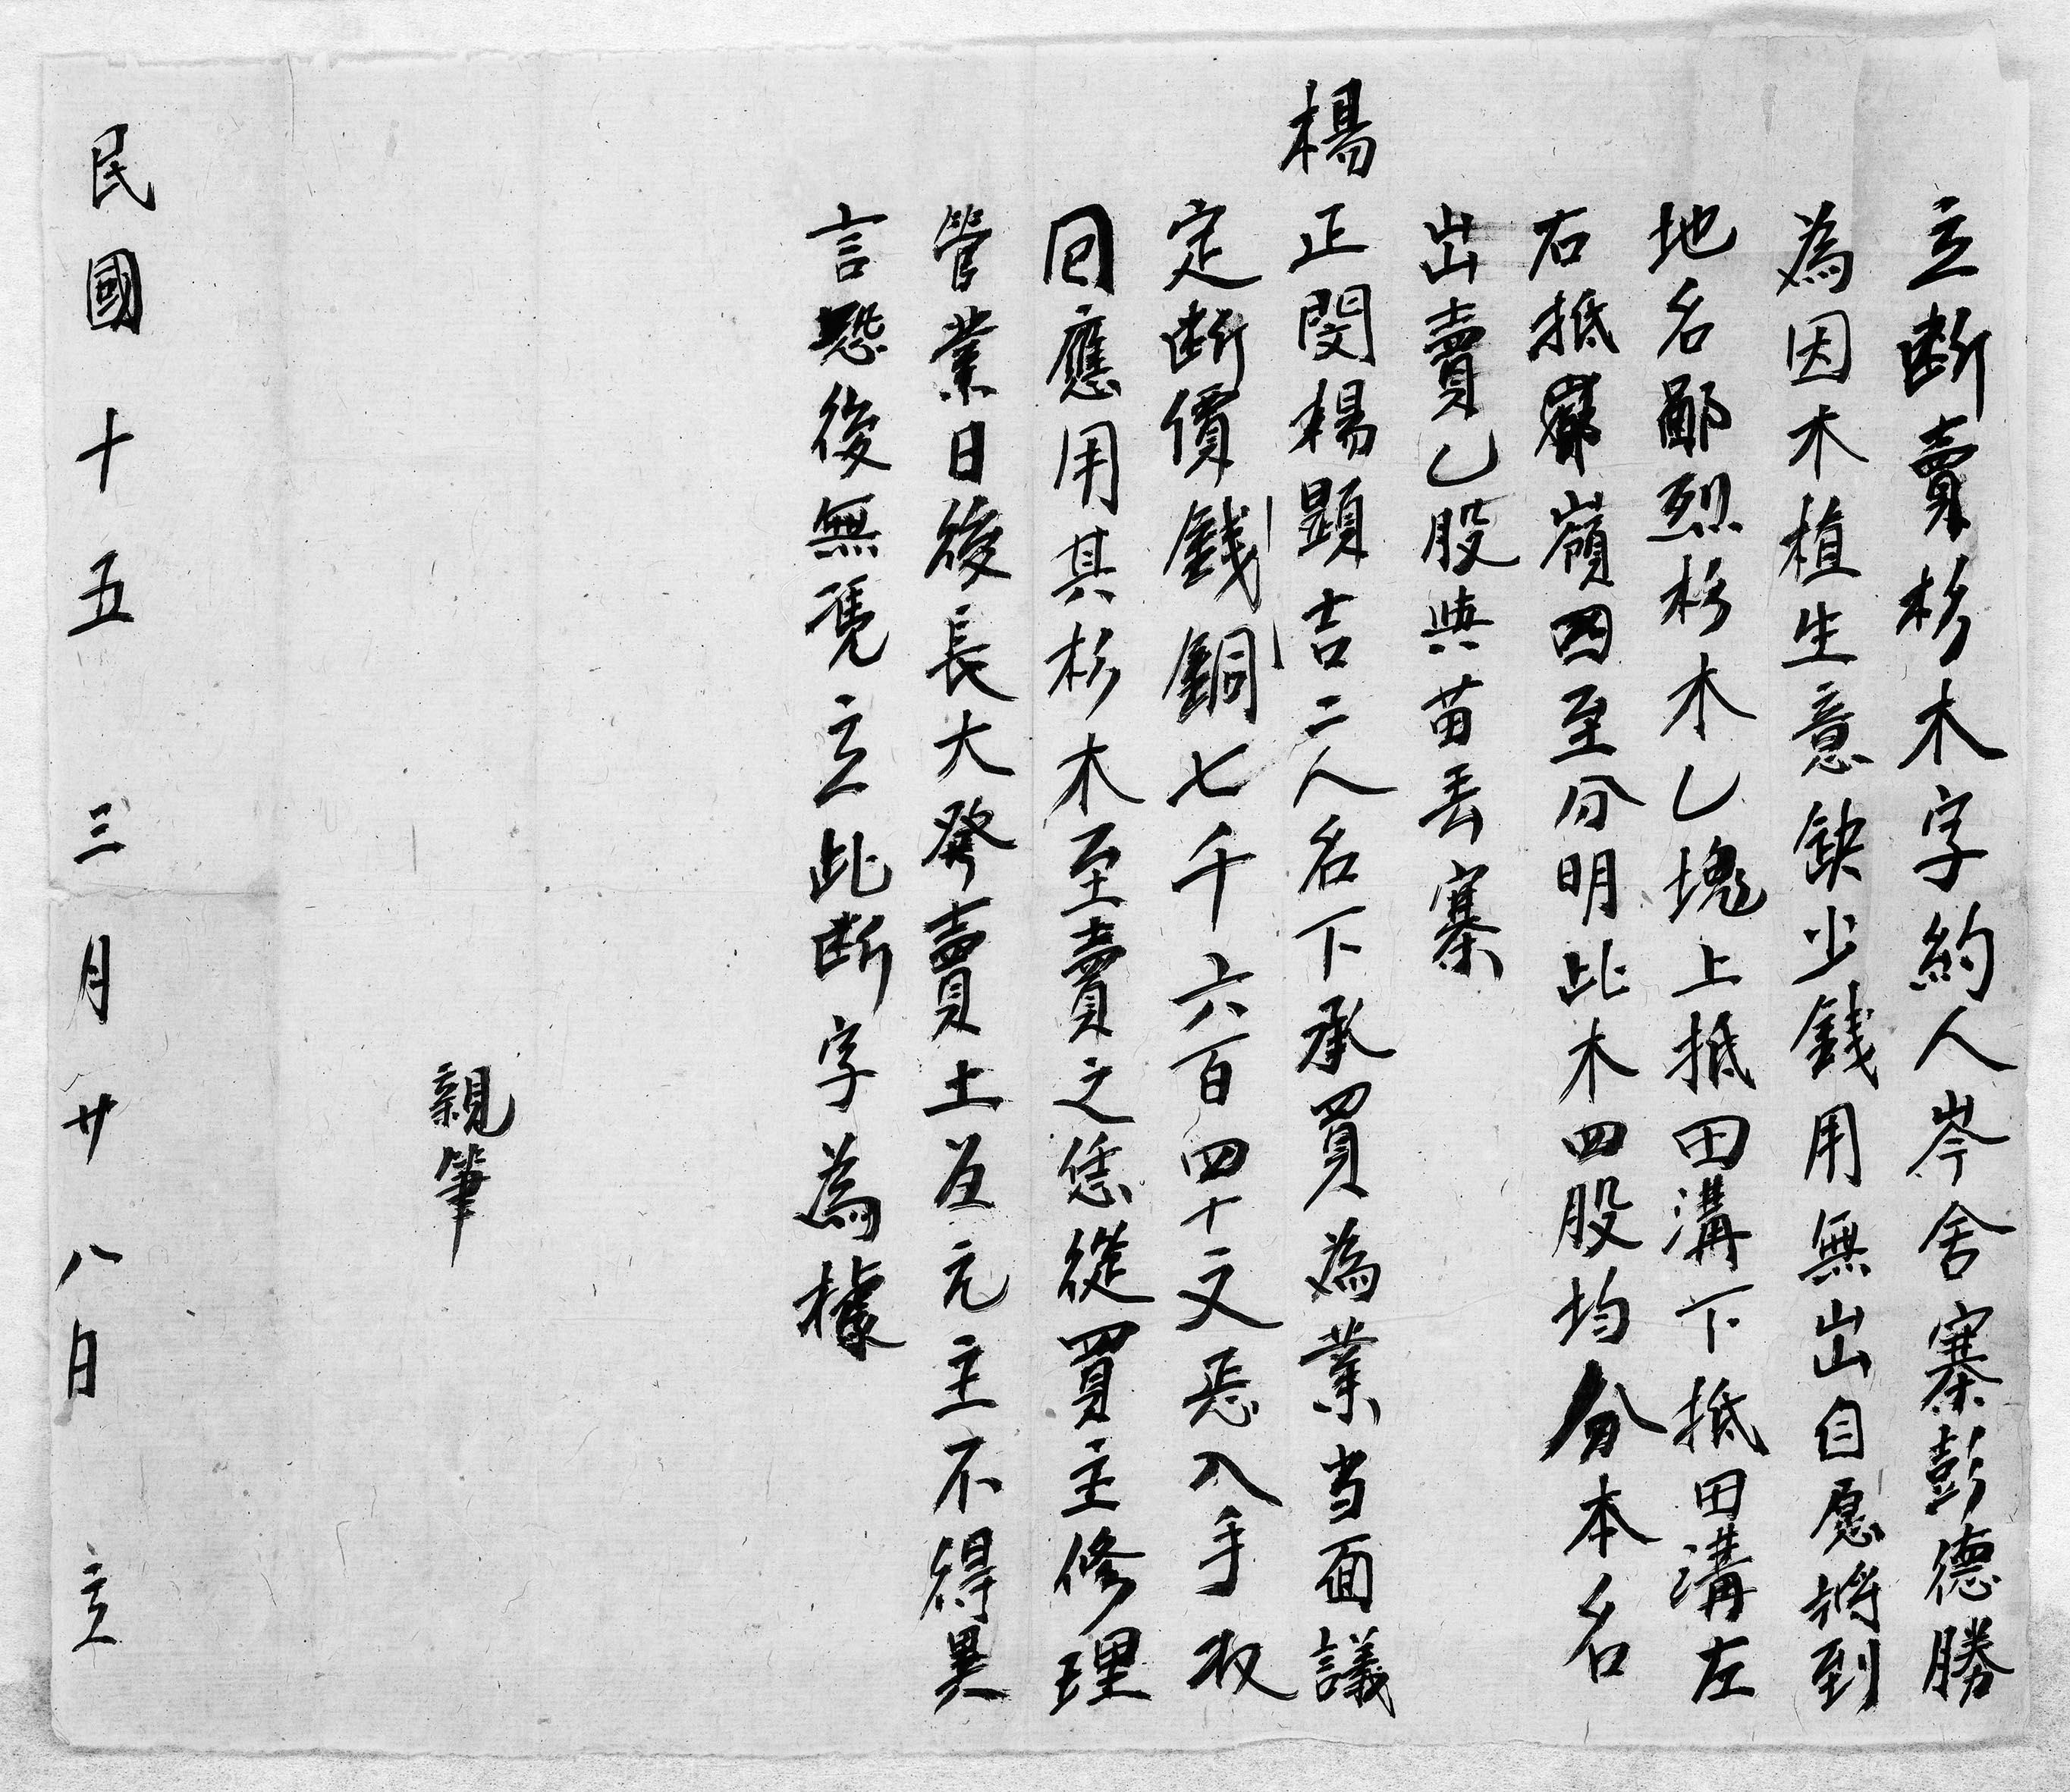 立断賣杉木字約人岑舍寨彭德勝
為因木植生意缺少錢用無出自愿將到
地名鄙烈杉木乙塊上抵田溝下抵田溝左
右抵嶺四至分明此木四股均分本名
出賣乙股與苗丟寨
楊正閔楊顕吉二人名下承買為業当面議
定断價錢銅七千六百四十文悉入手收
回應用其杉木至賣之恁從買主修理
管業日後長大發賣土歸元主不得異
言恐後無凴立此断字為據
親筆
民國十五三月廿八日立